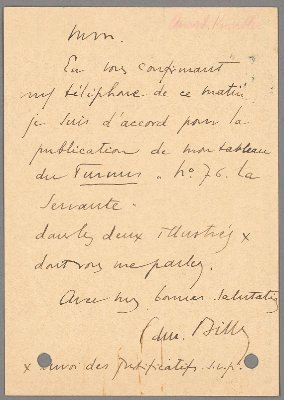 M/M.
En vous confirmant
mg téléphone de ce matin,
je suis d'accord pour la
publication de mon tableau
du Turnus. No. 76. La
Servante.
dans les deux illustrés x
dont vous me parlez.
Avec mes bonnes salutations
Edm. Bille
x envoi des justificatifs s.v.p.